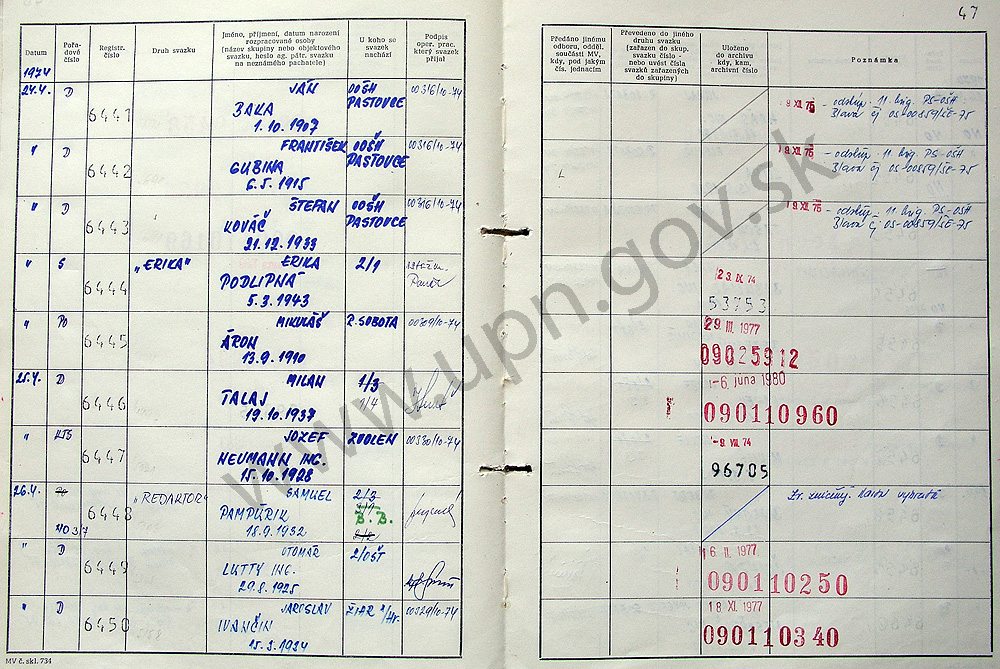 47
Datum
Pořadové číslo
Registr. číslo
Druh svazku
Jméno, příjmení, datum narození rozpracované osoby (název skupiny nebo objektového svazku, heslo ag. pátr. svazku na neznámého pachatele)
U koho se svazek nachází
Podpis oper. prac. který svazek přijal
Předáno jinému odboru, odděl. součásti MV, kdy, pod jakým čís. jednacím
Převedeno do jiného druhu svazku (zařazen do skup. svazku číslo - nebo uvést čísla svazků zařazených do skupiny)
Uloženo do archivu kdy, kam, archivní číslo
Poznámka
1974
24.4. D 6441 JÁN OOŠH 00316/10-74
BAKA PASTOVCE
1.10.1907
9 XII. 75 - odstúp. 11. brig. PS-OŠH
čj 05-00859/ŠE-75
" D 6442 FRANTIŠEK OOŠH 00316/10-74
GUBINA PASTOVCE
6.5.1915
19 XII. 75 - odstúp. 11. brig. PS-OŠH
čj 05-00859/ŠE-75
" D 6443 ŠTEFAN OOŠH 00316/10-74
KOVÁČ PASTOVCE
21.12.1933
19 XII. 75 - odstúp. 11. brig. PS-OŠH
čj 05-00859/ŠE-75
" S 6444 „ERIKA" ERIKA 2/1
PODLIPNÁ
5.3.1943
23. IX. 74
53753
" PO 6445 MIKULÁŠ R. SOBOTA 00309/10-74
ÁRON
13.9.1910
29. III. 1977
09025912
25.4. D 6446 MILAN 1/3
TALAJ 1/4
19.10.1937
-6. júna 1980
090110960
" KTS 6447 JOZEF ZVOLEN 00380/10-74
NEUMANN ING.
15.10.1928
-9. VIII. 74
96705
26.4. 6448 „REDAKTOR" SAMUEL 2/3
PAMPÚRIK B. B.
18.9.1932 2/2
NO 3/7
Zv. zničený.
" D 6449 OTOMÁR 2/OŠT
LUTTY ING.
29.8.1925
16. II. 1977
090110250
" D 6450 JAROSLAV ŽIAR n/Hr. 00329/10-74
IVANČIN
15.3.1934
18 XI. 1977
090110340
MV č. skl. 734
www.upn.gov.sk